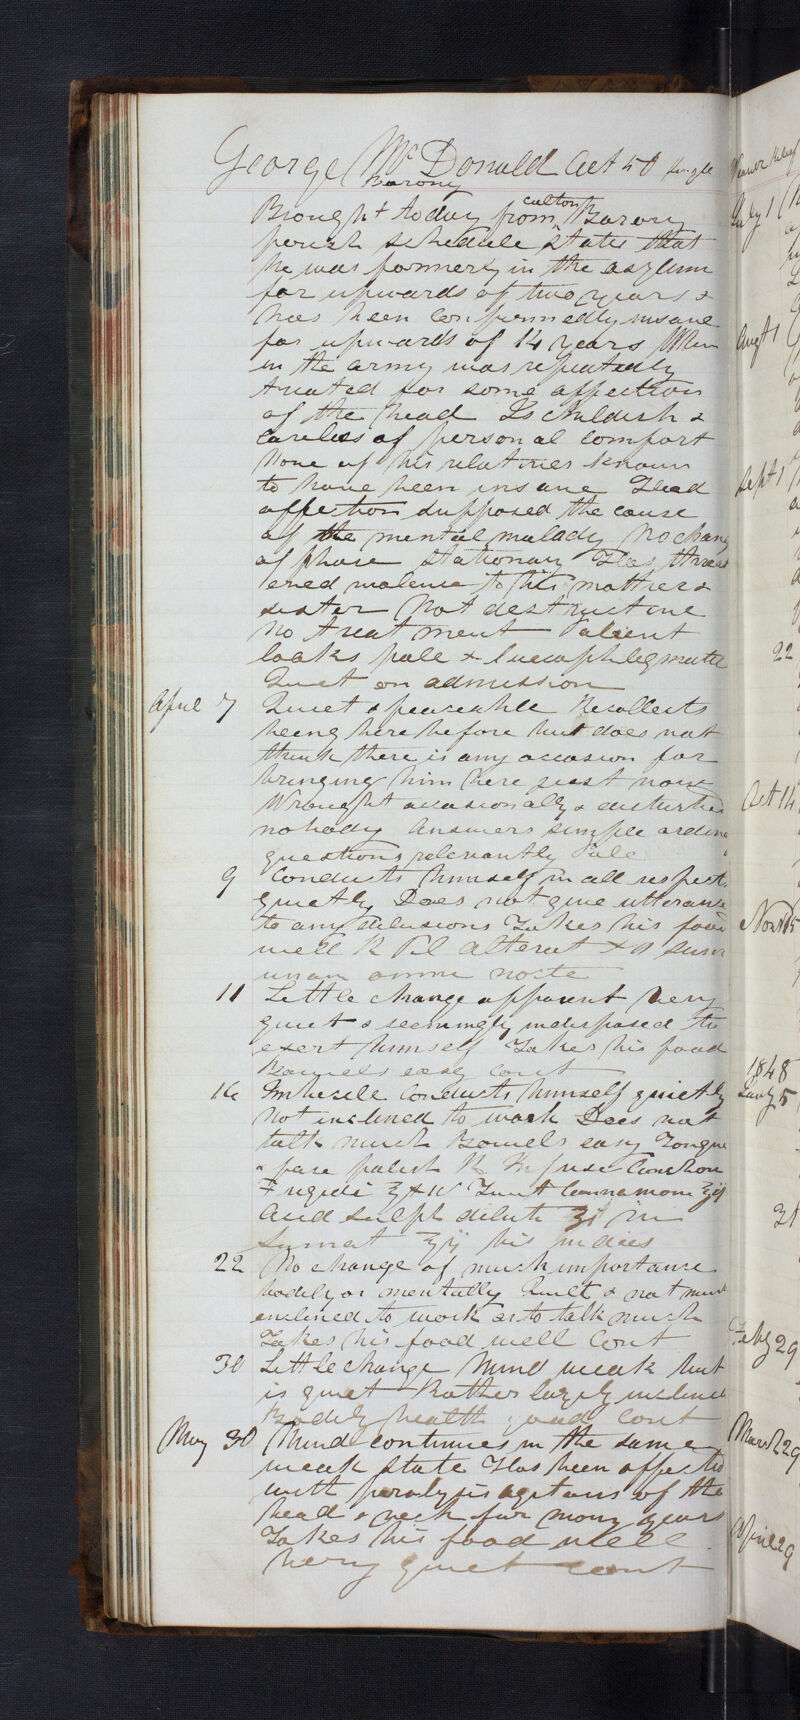 George Mc Donald Aet 50 single
Barony
Brought today from Calton Barony
parish schedule states that
he was formerly in the asylum
for upwards of two years &
has been confirmedly insane
for upwards of 14 years When
in the army was repeatedly
treated for some affection
of the head Is childish &
careless of personal comfort
None of his relatives known
to have been insane Head
affection supposed the cause
of the mental malady No chang
of phase Stationary Has threat
ened violence to his mother &
sister Not destructive
No treatment Patient
looks pale & leucophlegmatic
Quiet on admission
April 7 Quiet & peaceable Recollects
being here before but does not
think there is any occasion for
bringing him here just now
Wrought occasionally & disturbed
nobody Answers simple ordin
questions relevantly Pale
9 Conducts himself in all respects
quietly Does not give utterance
to any delusions Takes his food
well R Pil Alterat X
unam omni nocte
11 Little change apparent Very
quiet & seemingly indisposed to
exert himself Takes his food
Bowels easy Cont
16 Imbecile Conducts himself quietly
Not inclined to work Does not
talk much Bowels easy Tongue
& face palish R Infus
Frigidi Tinct Cinnamom
Acid Sulph dilut ʒi M
Sumat bis in dies
22 No change of much importance
bodily or mentally Quiet & not much
inclined to work or to talk much
Takes his food well Cont
30 Little change Mind weak but
is quiet Rather lazily inclined
Bodily health good Cont
May 30 Mind continues in the same
weak state Has been affected
with paralysis agitans of the
head & neck for many years
Takes his food well
Very quiet Cont
July 1
Augt 1
Sept 1
22
Oct 14
Nov 15
1848
Jany 5
31
Feby 29
March 29
April 29